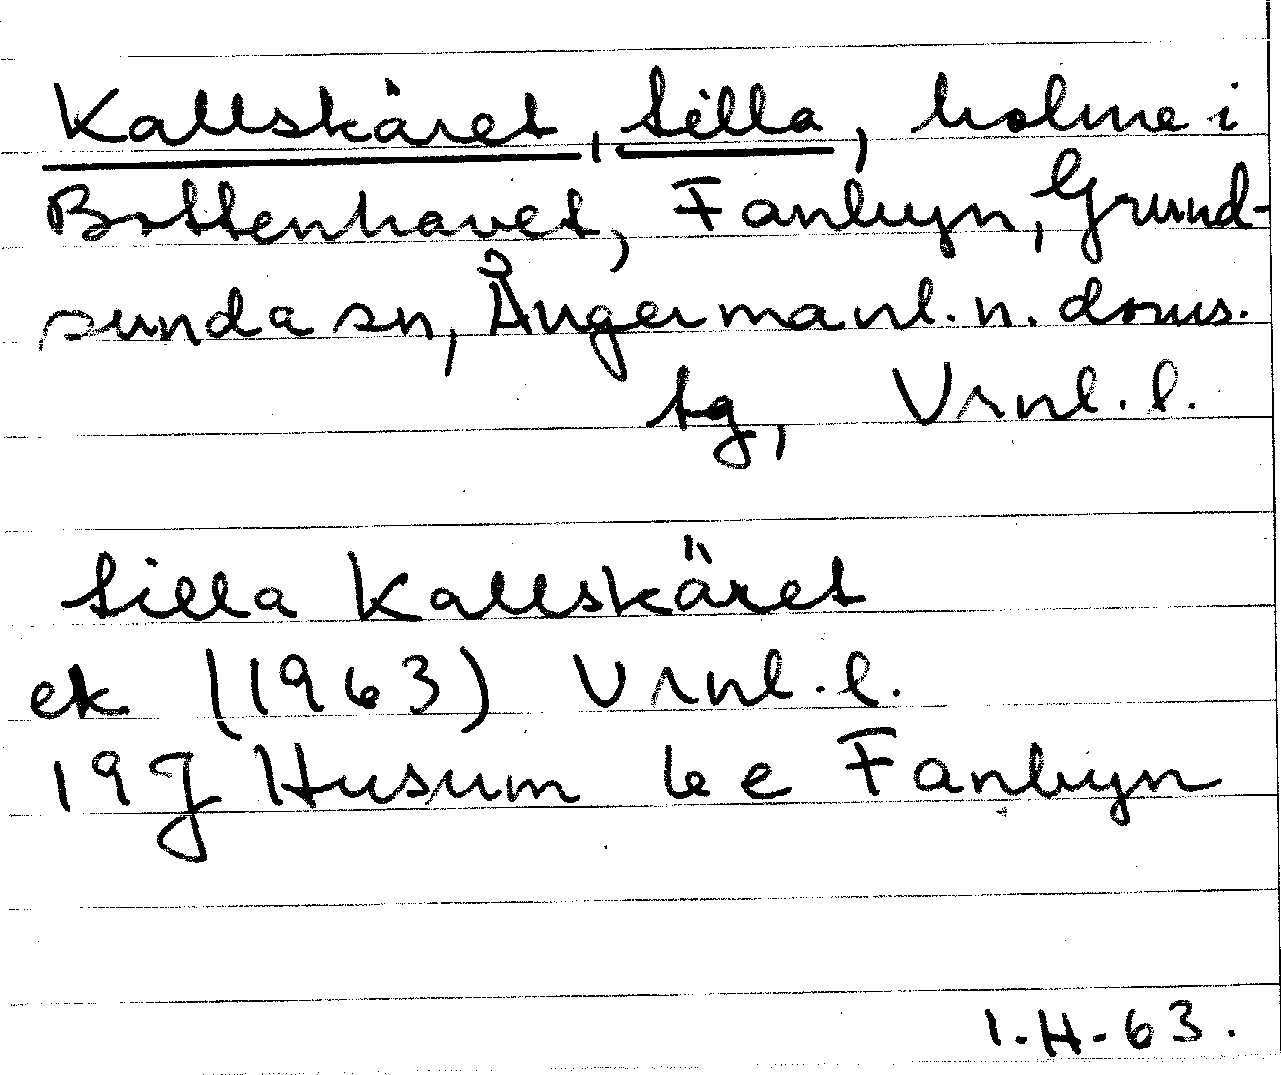 Kallskäret, Lilla, holme i
Bottenhavet, Fanbyn, Grund-
sunda sn, Ångermanl. n. doms.
tg, Vrnl. l.
Lilla Kallskäret
ek (1963) Vrnl. l.
19J Husum 6e Fanbyn
1.H.63.